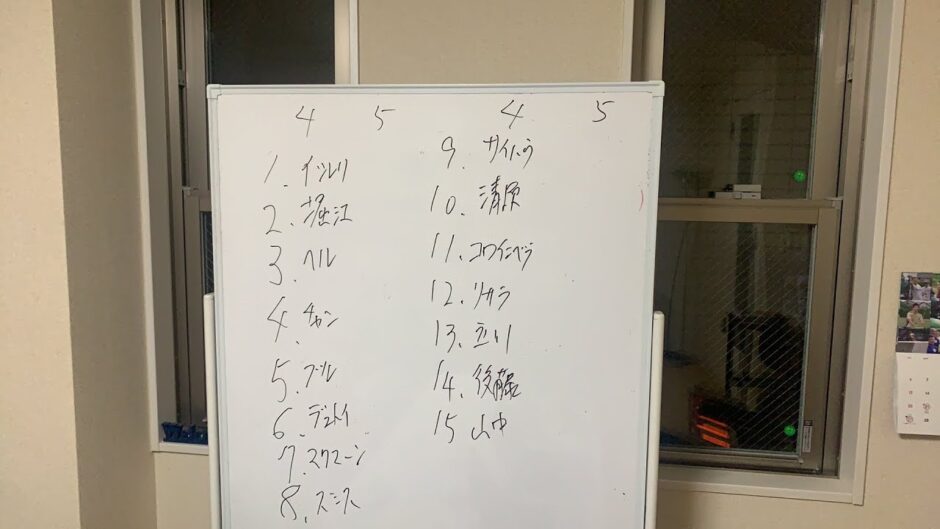 4 5 4 5
1. イシレリ
2. 堀江
3. ヘル
4. チャン
5. ブル
6. デュトイ
7. スクマーン
8. スミス
9. サイバラ
10. 清原
11. コロインベラ
12. リサラ
13. 立川
14. 後藤
15 山中